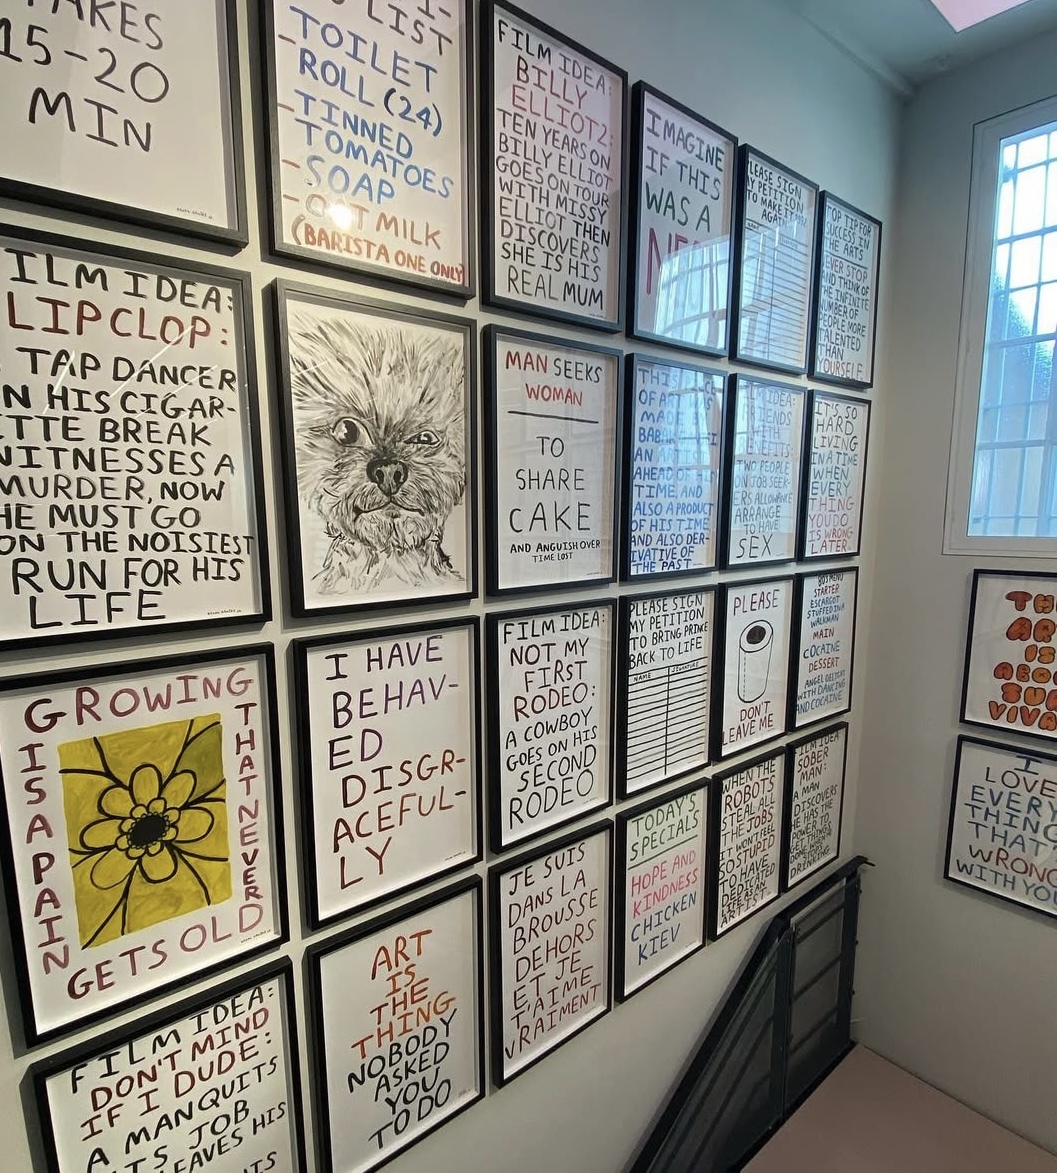 TAKES
15-20
MIN
LIST
-TOILET
ROLL (24)
-TINNED
TOMATOES
-SOAP
-OAT MILK
(BARISTA ONE ONLY)
FILM IDEA:
BILLY
ELLIOT 2:
TEN YEARS ON
BILLY ELLIOT
GOES ON TOUR
WITH MISSY
ELLIOT THEN
DISCOVERS
SHE IS HIS
REAL MUM
IMAGINE
IF THIS
WAS A
PLEASE SIGN
MY PETITION
TO MAKE IT
AGAIN
TOP TIP FOR
SUCCESS IN
THE ARTS
EVER STOP
AND THINK OF
THE INFINITE
NUMBER OF
PEOPLE MORE
TALENTED
THAN
YOURSELF
FILM IDEA:
LIPCLOP:
TAP DANCER
N HIS CIGAR-
ETTE BREAK
WITNESSES A
MURDER, NOW
HE MUST GO
ON THE NOISIEST
RUN FOR HIS
LIFE
MAN SEEKS
WOMAN
TO
SHARE
CAKE
AND ANGUISH OVER
TIME LOST
THIS
OF ART WAS
MADE
AN ARTIST
AHEAD OF HIS
TIME, AND
ALSO A PRODUCT
OF HIS TIME
AND ALSO DER-
IVATIVE OF
THE PAST
FILM IDEA:
FRIENDS
WITH
BENEFITS:
TWO PEOPLE
ON JOB SEEK-
ERS ALLOWANCE
ARRANGE
TO HAVE
SEX
IT'S SO
HARD
LIVING
IN A TIME
WHEN
EVERY
THING
YOU DO
IS WRONG
LATER
GROWING
THAT NEVER
IS A PAIN
GETS OLD
I HAVE
BEHAV-
ED
DISGR-
ACEFUL-
LY
FILM IDEA:
NOT MY
FIRST
RODEO:
A COWBOY
GOES ON HIS
SECOND
RODEO
PLEASE SIGN
MY PETITION
TO BRING PRINCE
BACK TO LIFE
NAME SIGNATURE
PLEASE
DON'T
LEAVE ME
80S MENU
STARTER
ESCARGOT
STUFFED IN A
WALKMAN
MAIN
COCAINE
DESSERT
ANGEL DELIGHT
WITH DANCING
AND COCAINE
THIS
ART
IS
ABOUT
SUR
VIVAL
FILM IDEA:
DON'T MIND
IF I DUDE:
A MAN QUITS
ITS JOB
LEAVES HIS
ART
IS
THE
THING
NOBODY
ASKED
YOU
TO DO
JE SUIS
DANS LA
BROUSSE
DEHORS
ET JE
T'AIME
VRAIMENT
TODAY'S
SPECIALS
HOPE AND
KINDNESS
CHICKEN
KIEV
WHEN THE
ROBOTS
STEAL ALL
THE JOBS
IT WON'T FEEL
SO STUPID
TO HAVE
DEDICATED
LIFE AS AN
ARTIST
FILM IDEA
SOBER
MAN:
A MAN
DISCOVERS
HE HAS THE
POWER TO
DRINKING
I
LOVE
EVERY
THING
THAT'S
WRONG
WITH YOU